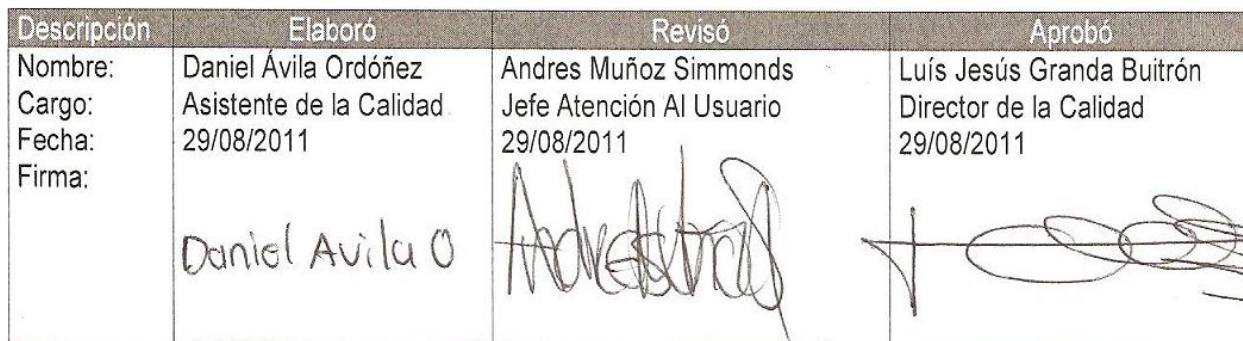 Descripción Elaboró Revisó Aprobó
Nombre: Daniel Ávila Ordóñez Andres Muñoz Simmonds Luís Jesús Granda Buitrón
Cargo: Asistente de la Calidad Jefe Atención Al Usuario Director de la Calidad
Fecha: 29/08/2011 29/08/2011 29/08/2011
Firma:
Daniel Avila O